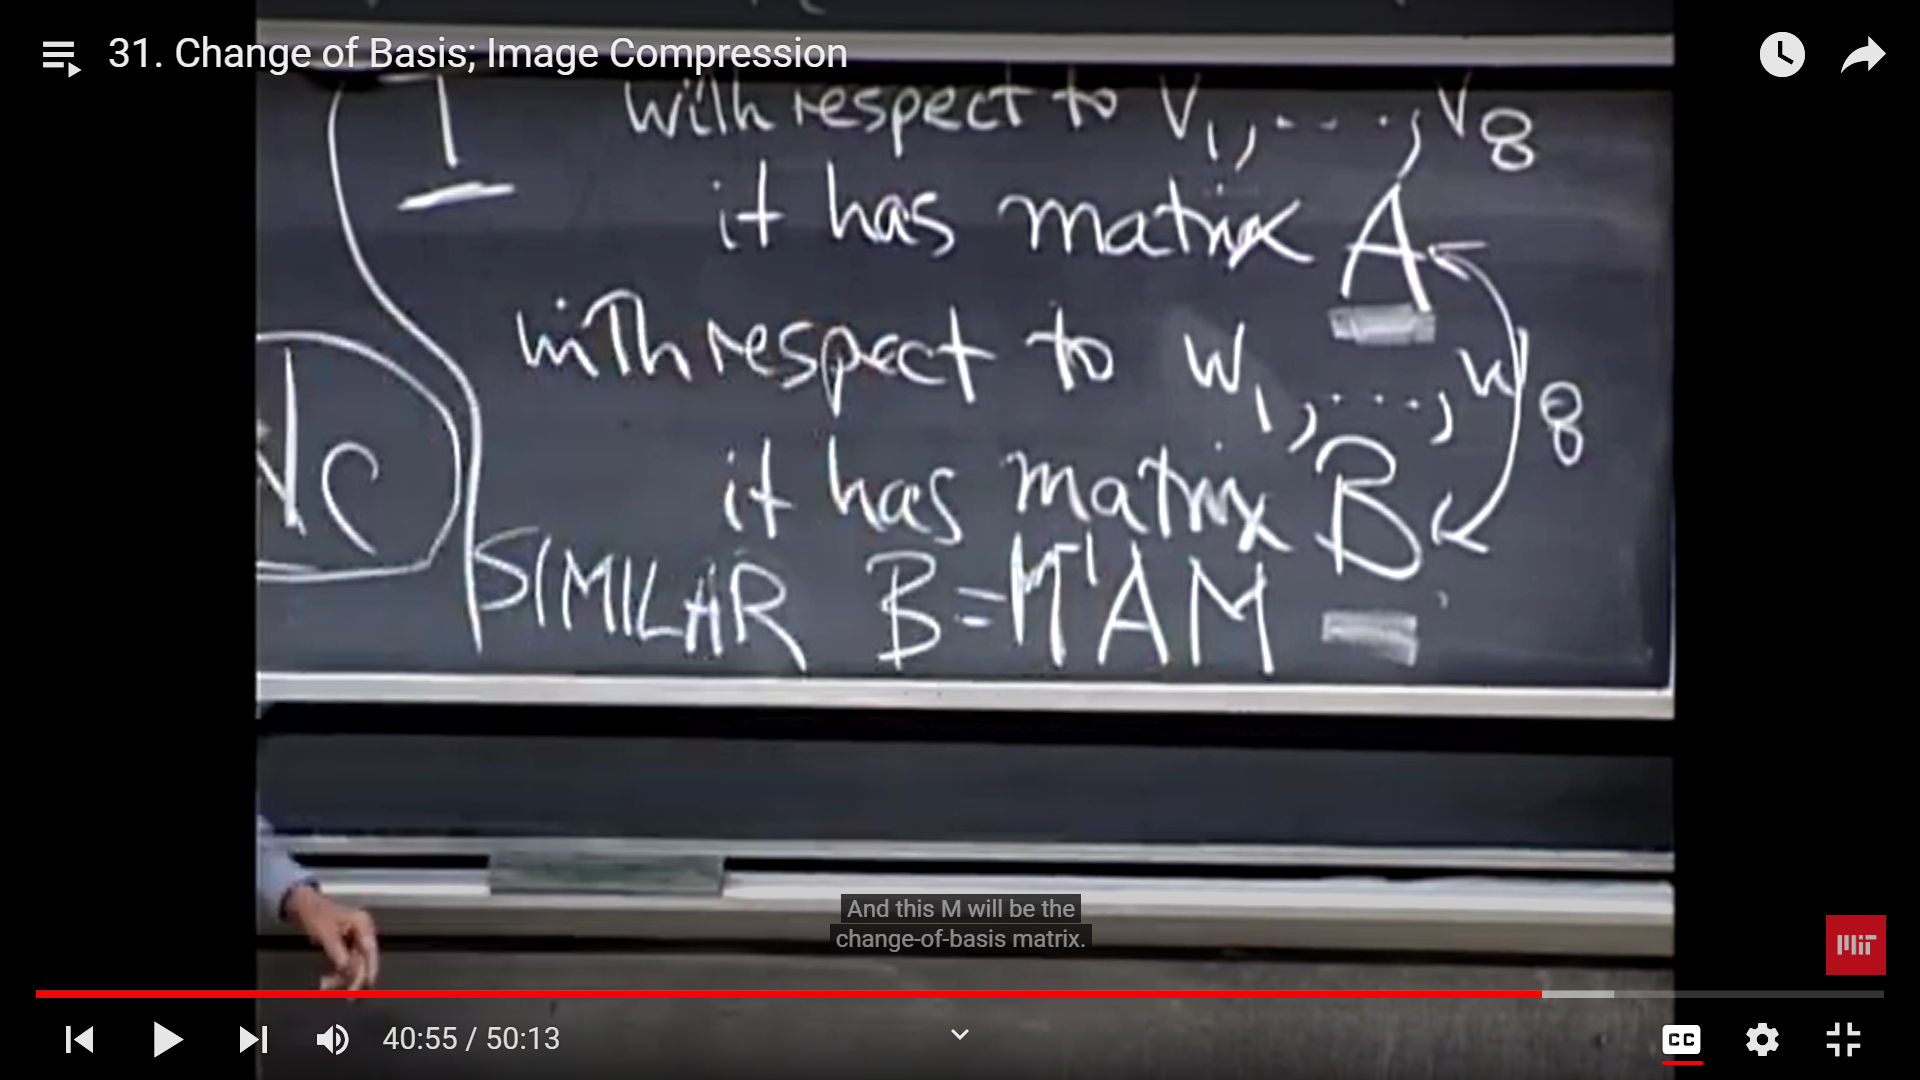 31. Change of Basis; Image Compression
T with respect to v1, ...., v8
it has matrix A
with respect to w1, ...., w8
it has matrix B
SIMILAR B=M⁻¹AM
c
And this M will be the
change-of-basis matrix.
MIT
40:55 / 50:13
CC